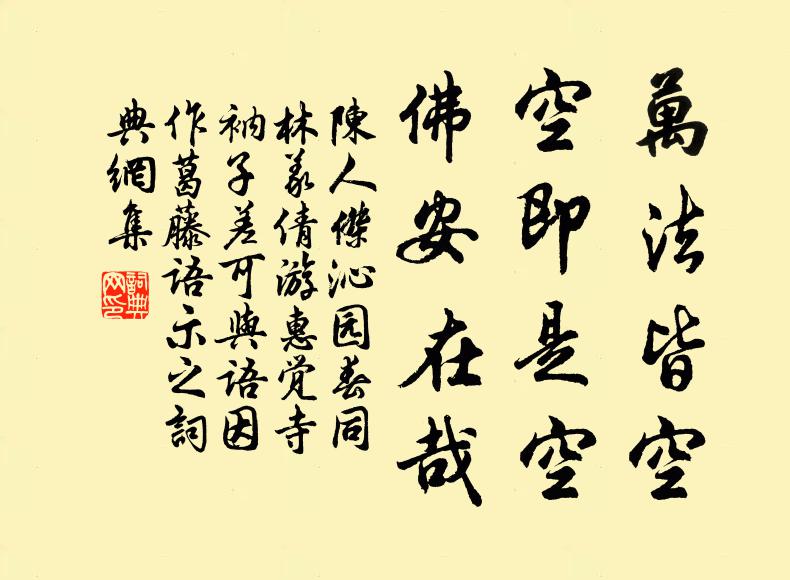 萬法皆空
空即是空
佛安在哉
陳人傑沁园春同
林義倩游惠觉寺
衲子差可與語因
作葛藤語示之詞
典網集
詞典网印